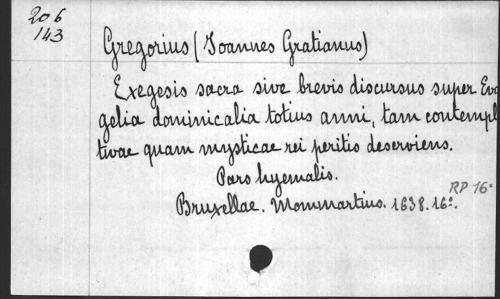 206
143
Gregorius (Joannes Gratianus)
Exegesis sacra sive brevis discursus super Eva
gelia dominicalia totius anni, tam contempl
tivae quam mysticae rei peritis deserviens.
Pars hyemalis.
RP 16°
Bruxellae. Mommartius. 1638. 16º.